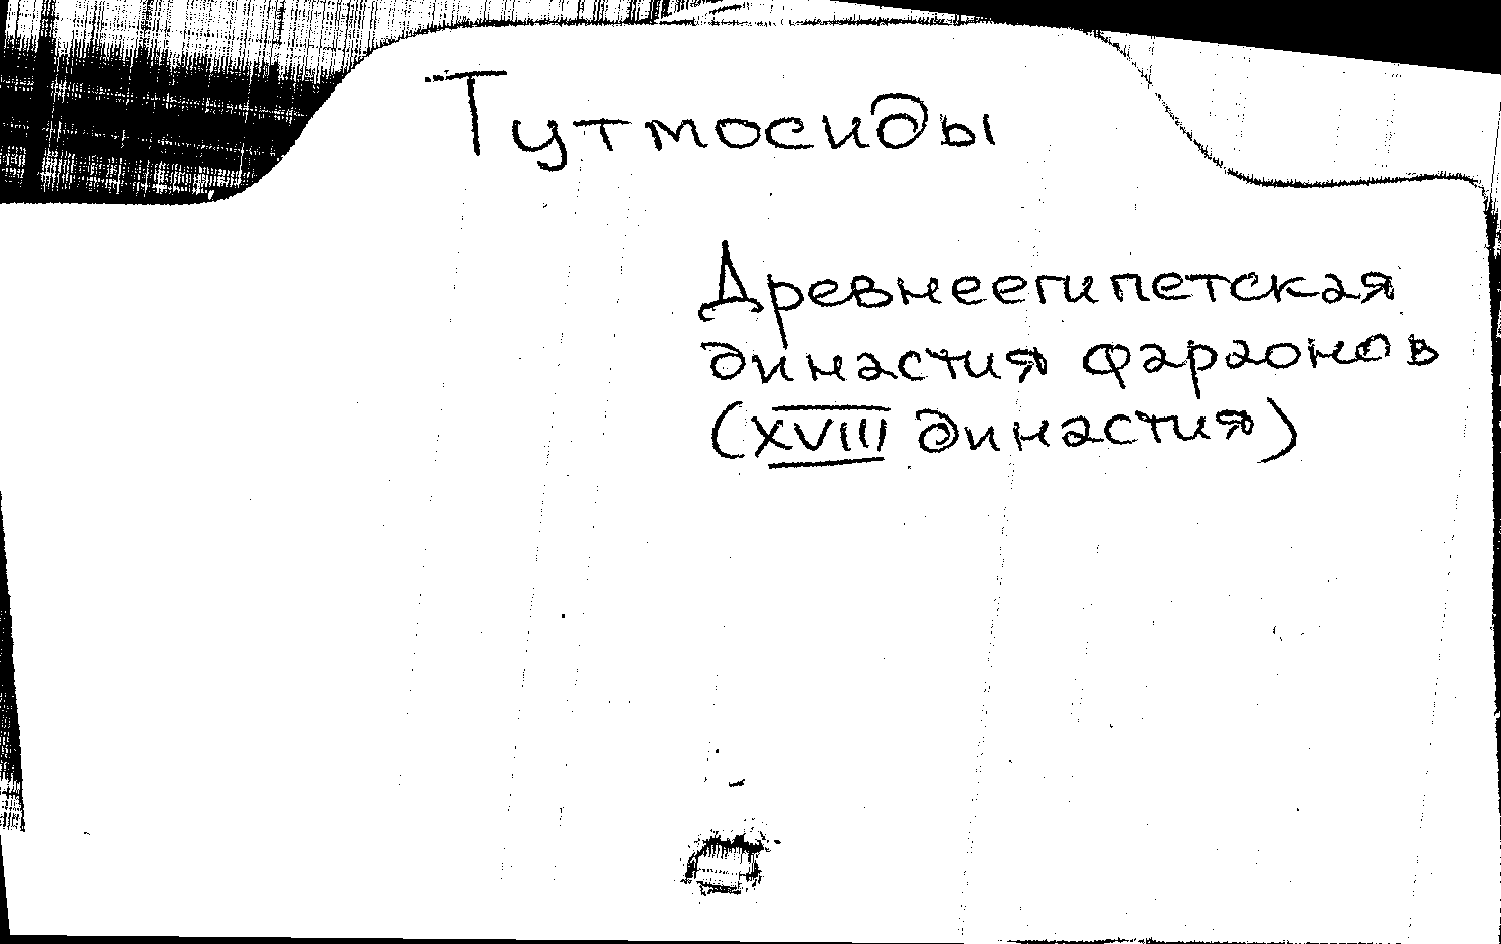 Тутмосиды
Древнеегипетская
династия фараонов
(XVIII династия)